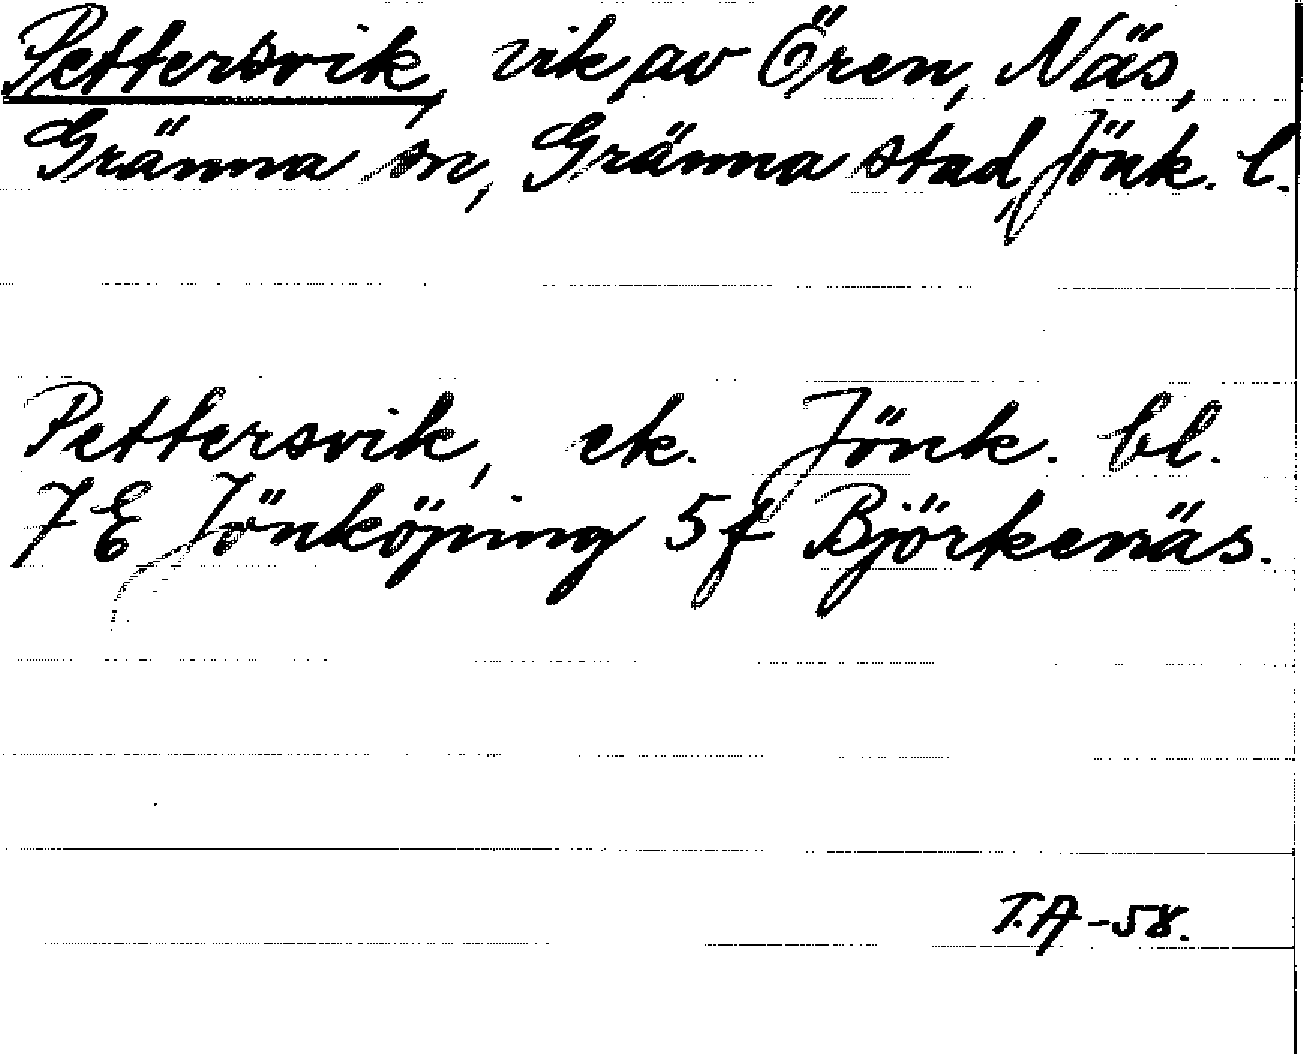 Pettersvik, vik av Ören, Näs,
Gränna sn, Gränna stad, Jönk. l.
Pettersvik, ek. Jönk. bl.
7E Jönköping 5f Björkenäs.
T.A-58.